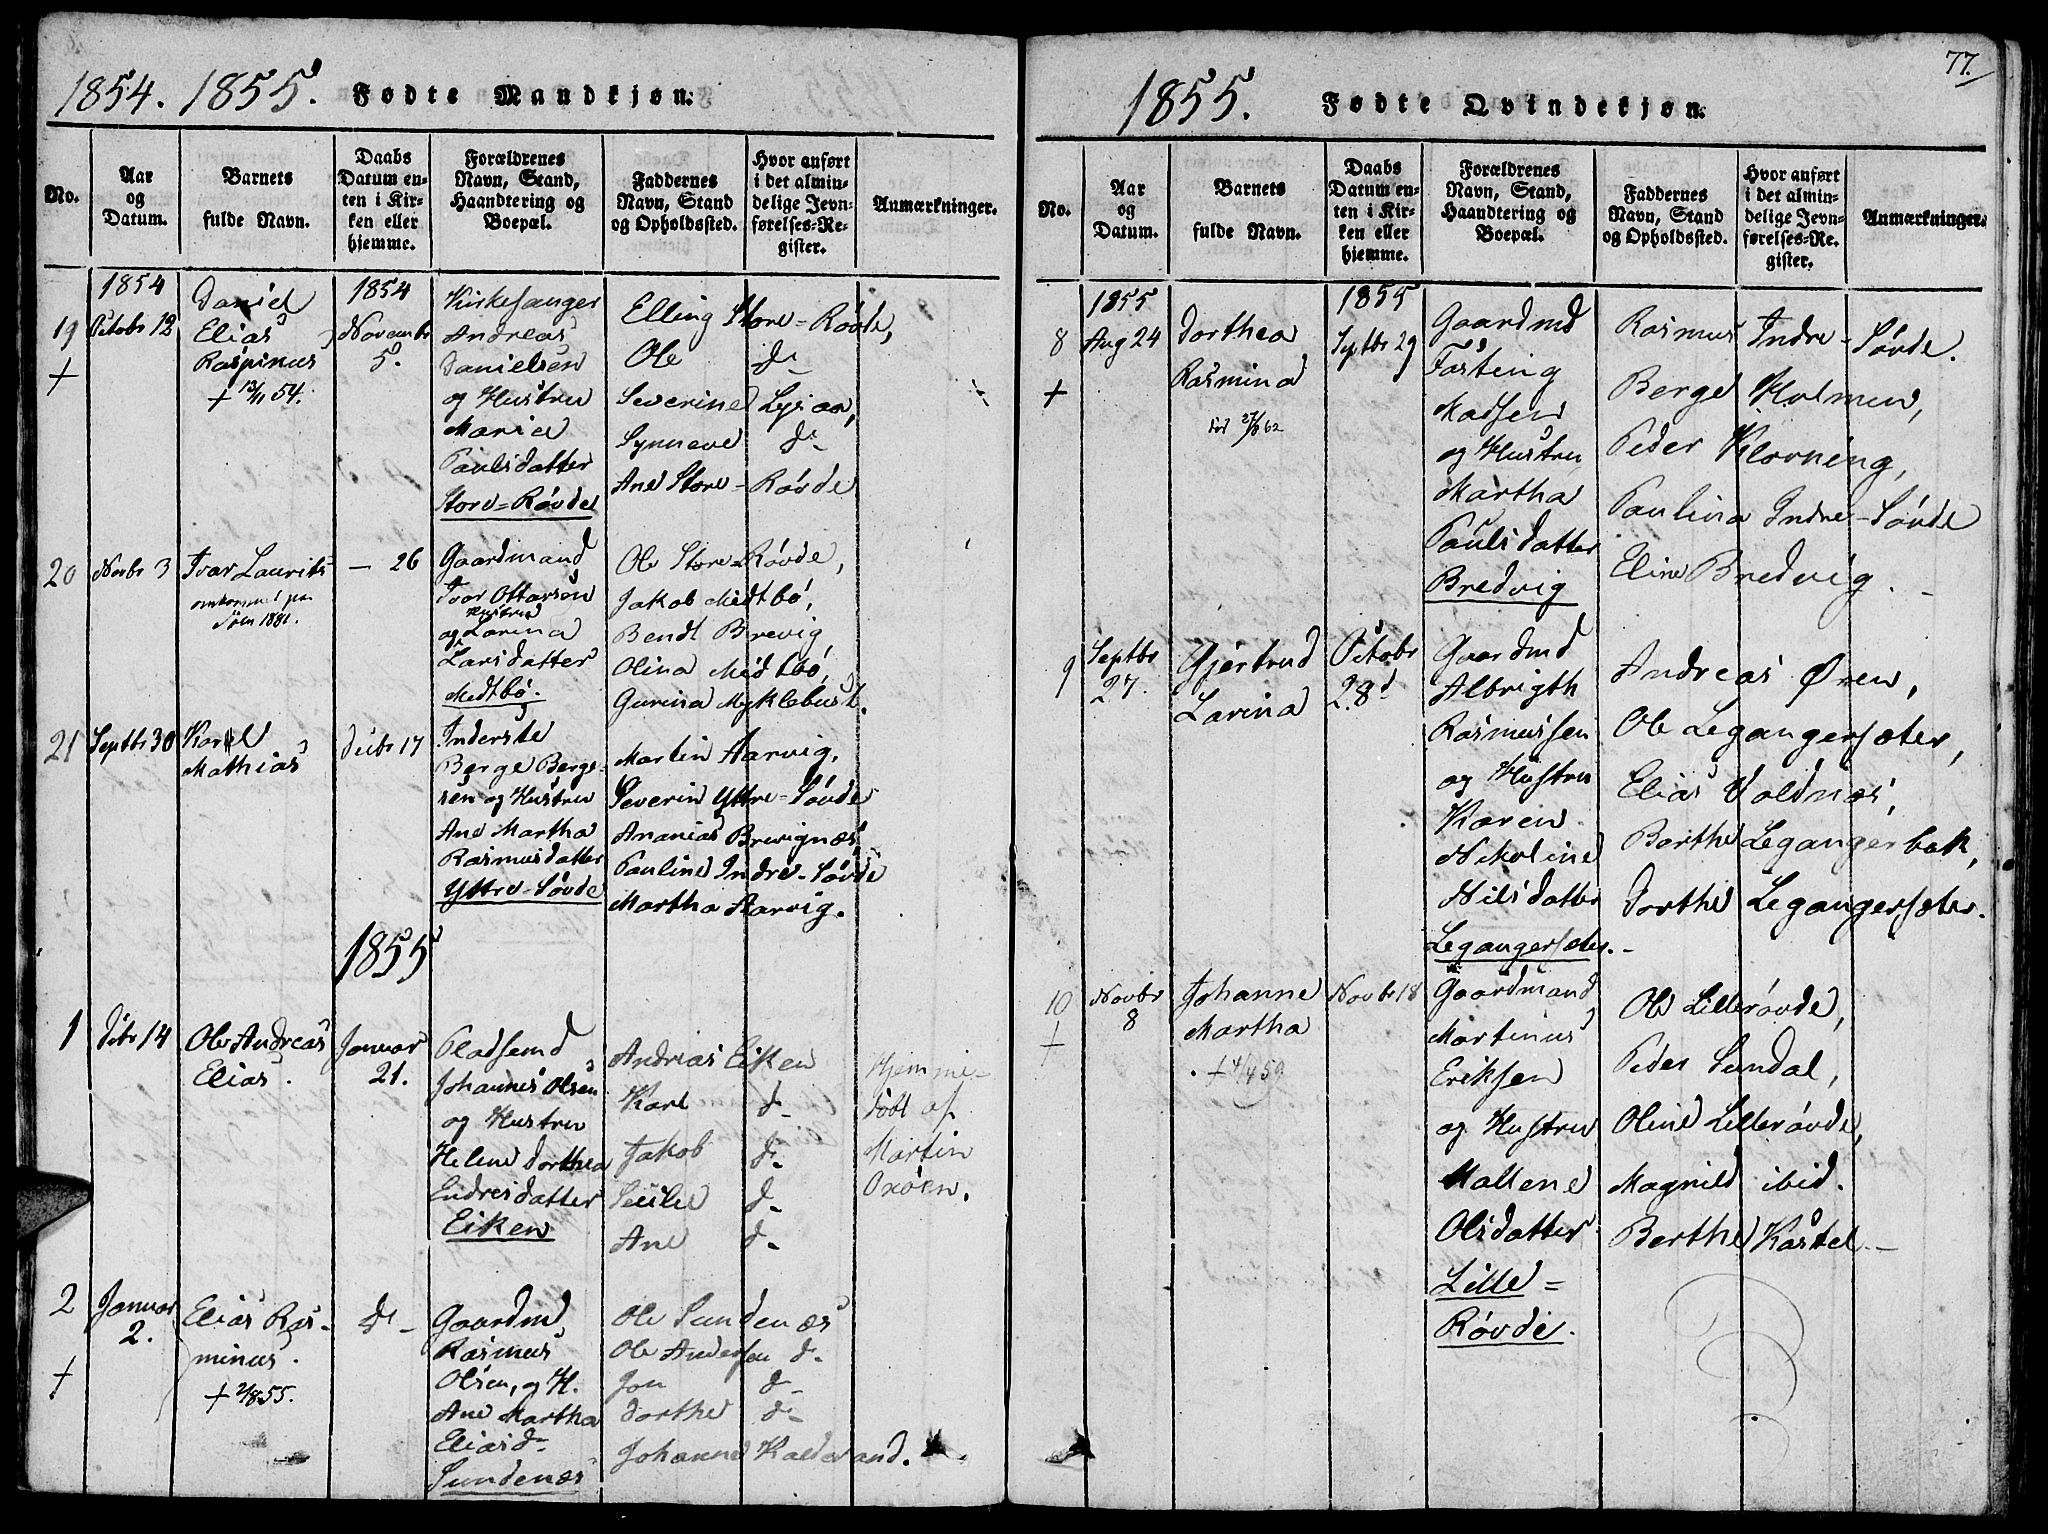 1854. 1855. Fødte Mandkjøn.
No.
Aar
og
Datum.
Barnets
fulde Navn.
Daabs
Datum en-
ten i Kir-
ken eller
hjemme.
Forældrenes
Navn, Stand,
Haandtering og
Boepæl.
Faddernes
Navn, Stand
og Opholdssted.
Hvor anført
i det almin-
delige Jevn-
førelses-Re-
gister.
Anmærkninger.
19
+
1854
Octobr 12
Daniel
Elias
Raspinus
+ 13/11 54.
1854
Novembr
5.
Kirkesanger
Andreas
Danielsen
og Hustru
Marie
Paulsdatter
Store-Røvde
Elling Store-Røvde,
Ole do
Severine Lysaa,
Synneve do
Ane Store-Røvde
20
Novbr 3
Ivar Laurits
omkommet paa
Søen 1881.
— 26
Gaardmand
Ivar Ottarsen
og Hustru
Larina
Larsdatter
Medtbö.
Ole Store-Røvde,
Jakob Medtbö,
Bendt Brevig
Olina Medtbö,
Gurina Myklebust.
21
Septbr 30
Karl
Mathias
Decbr 17
Inderste
Berge Berge-
sen og Hustru
Ane Martha
Rasmusdatter
Yttre-Søvde
Martin Aarvig,
Severin Yttre-Søvde
Ananias Brevignæs
Pauline Indre-Søvde
Martha Aarvig.
1855
1
Debr 14
Ole Andreas
Elias.
Januar
21.
Pladsemd
Johannes Olsen
og Hustru
Helene Dorthea
Endresdatter
Eiken
Andreas Eiken
Karl do
Jakob do
Secilie do
Ane do
Hjemme-
døbt af
Martin
Oxöen.
2
+
Januar
2.
Elias Ras-
minus.
+ 2/8 55.
do
Gaardmd
Rasmus
Olsen, og H.
Ane Martha
Eliasd.
Sundenæs
Ole Sundenæs
Ole Andersen do
Jon do
Dorthe do
Johanne Kaldvand.
77.
1855. Fødte Qvindekjøn.
No.
Aar
og
Datum.
Barnets
fulde Navn.
Daabs
Datum en-
ten i Kir-
ken eller
hjemme.
Forældrenes
Navn, Stand,
Haandtering og
Boepæl.
Faddernes
Navn, Stand
og Opholdssted.
Hvor anført
i det almin-
delige Jevn-
førelses-Re-
gister.
Anmærkninger.
8
+
1855
Aug 24
Dorthea
Rasmina
1855
Septbr 29
Gaardmd
Fosting
Madsen
og Hustru
Martha
Paulsdatter
Bredvig
Rasmus Indre-Søvde.
Berge Holmen,
Peder Klovning,
Paulina Indre-Søvde
Eline Bredvig.
9
Septbr
27.
Gjertrud
Larina
Octobr
28.
Gaardmd
Albrigth
Rasmussen
og Hustru
Karen
Nikoline
Nilsdatter
Legangersæter.
Andreas Øren,
Ole Legangersæter,
Elias Voldnæs,
Berthe Legangerbak,
Dorthe Legangersæter.
10
+
Novbr
8
Johanne
Martha
+ 4/4 59
Novbr 18
Gaardmand
Martinus
Eriksen
og Hustru
Mallene
Olsdatter
Lille-
Røvde.
Ole Lillerøvde,
Peder Sundal,
Oline Lillerøvde,
Magnild ibid.
Berthe Kastel